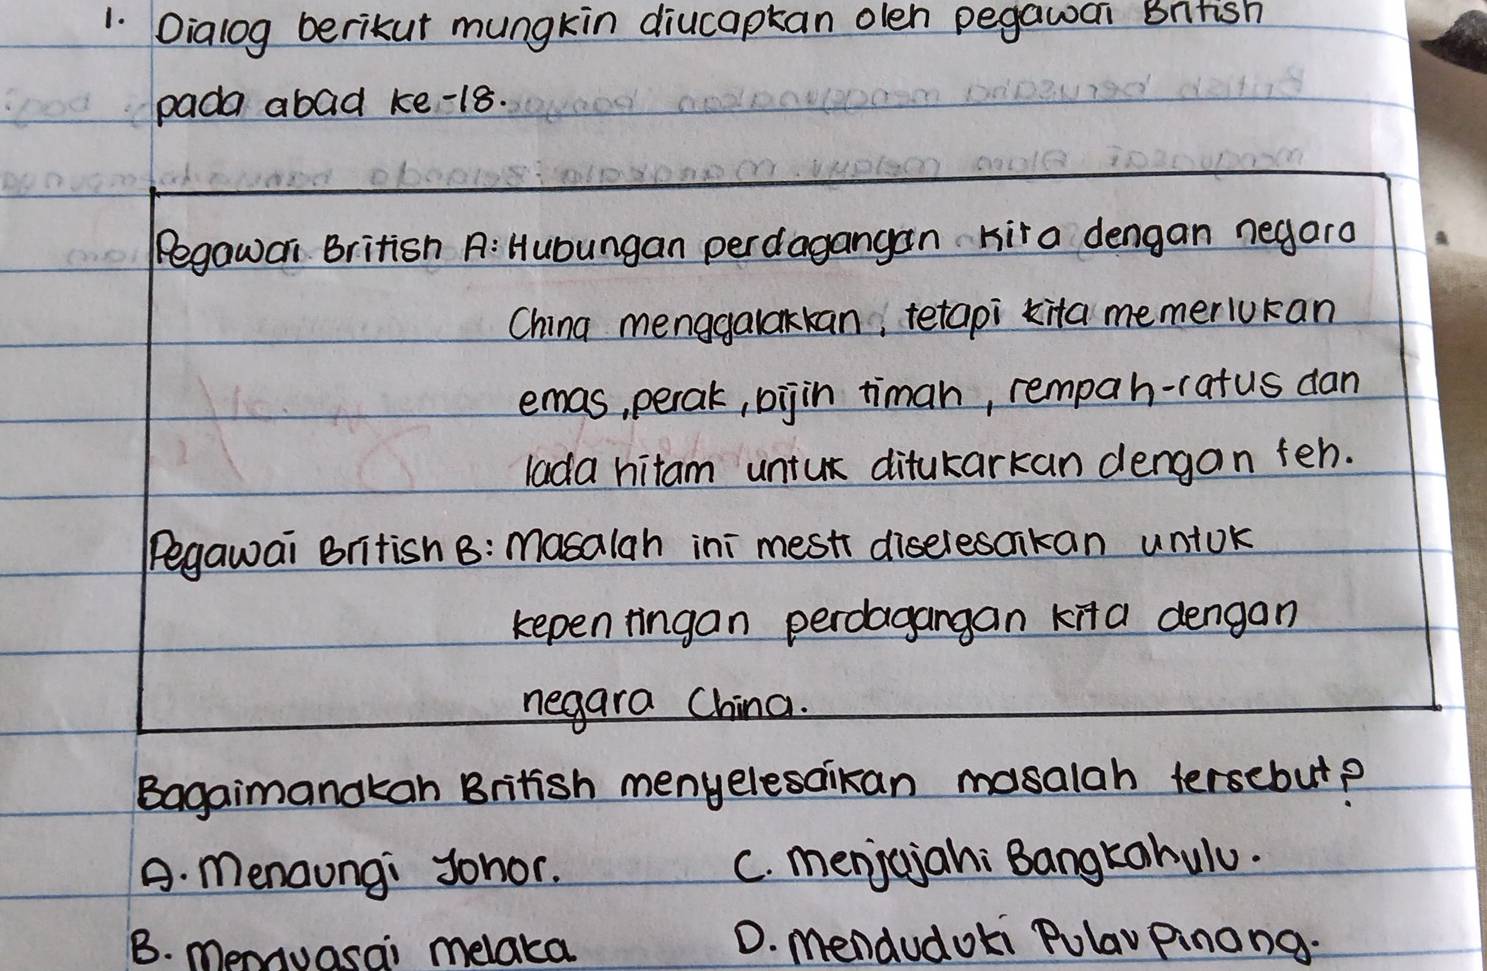 1. Dialog berikut mungkin diucapkan oleh pegawai British
pada abad ke-18.
Pegawai British A: Hubungan perdagangan kita dengan negara
China menggalakkan, tetapi kita memerlukan
emas, perak, bijih timah, rempah-ratus dan
lada hitam untuk ditukarkan dengan teh.
Pegawai British B: Masalah ini mesti diselesaikan untuk
kepentingan perdagangan kita dengan
negara China.
Bagaimanakah British menyelesaikan masalah tersebut?
A. Menaungi Johor. C. Menjajahi Bangkahulu.
B. Menguasai Melaka D. Menduduki Pulau Pinang.